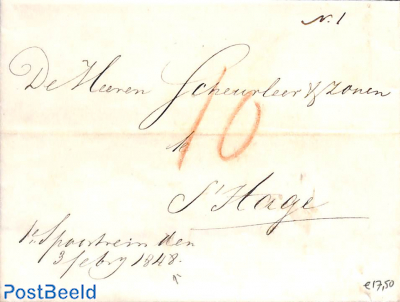 N. 1
De Heeren Scheurleer & Zonen
10
S'Hage
pr. Spoortrein den
3 febry 1848.
€17,50
PostBeeld